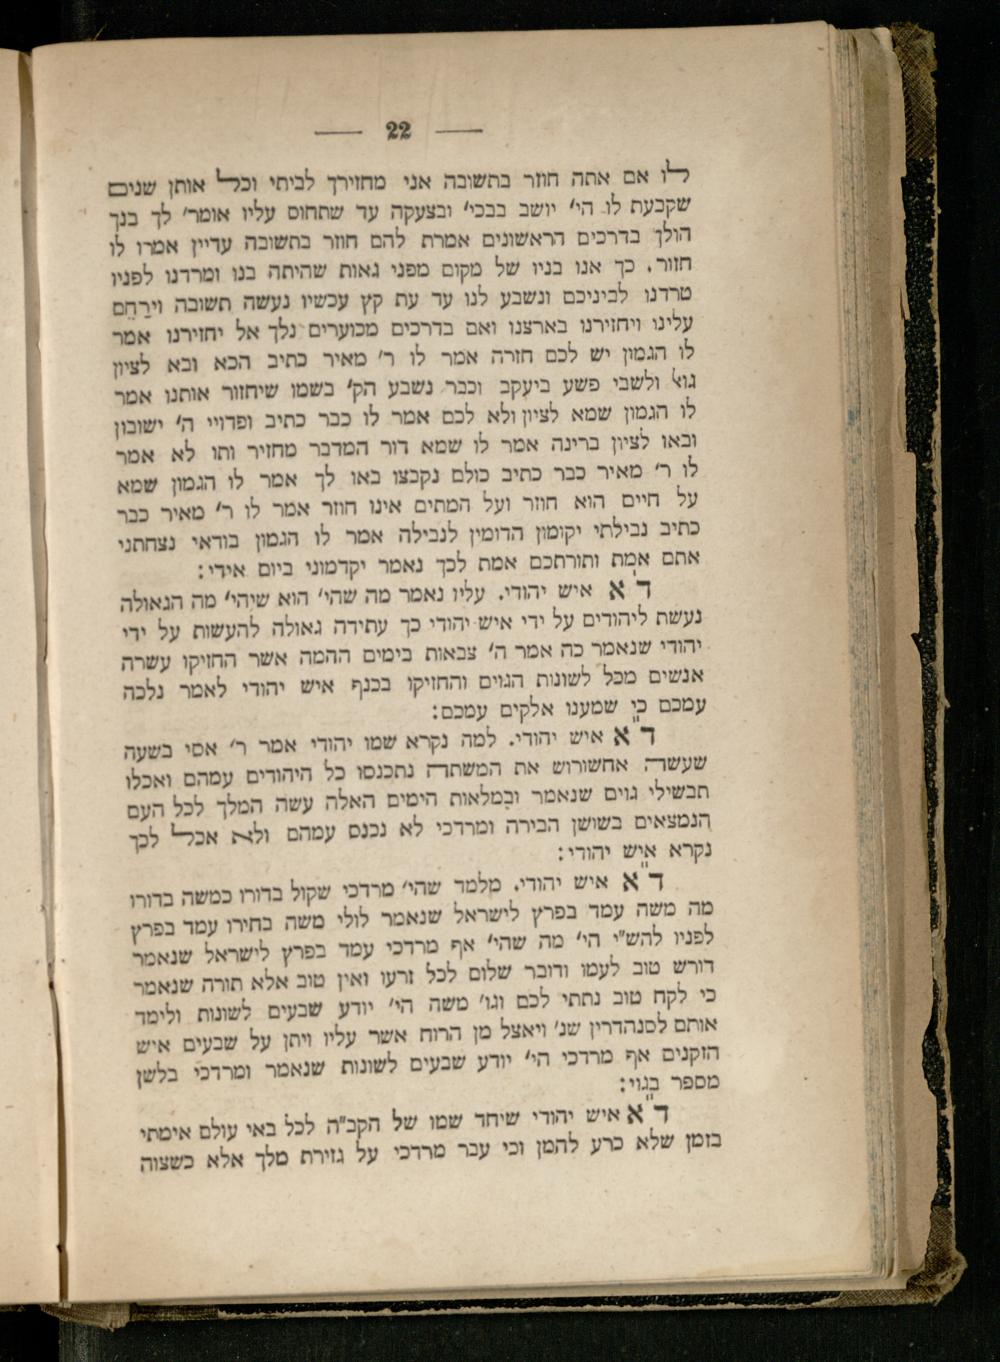 — 22 —
לו אם אתה חוזר בתשובה אני מחזירך לביתי וכל אותן שנים
שקבעת לו הי׳ יושב בבכי׳ ובצעקה עד שתחוס עליו אומר׳ לך בנך
הולך בדרכים הראשונים אמרת להם חוזר בתשובה עדיין אמרו לו
חזור. כך אנו בניו של מקום מפני גאות שהיתה בנו ומרדנו לפניו
טרדנו לביניכם ונשבע לנו עד עת קץ עכשיו נעשה תשובה וירַחֵם
עלינו ויחזירנו בארצנו ואם בדרכים מכוערים נלך אל יחזירנו אמר
לו הגמון יש לכם חזרה אמר לו ר׳ מאיר כתיב הכא ובא לציון
גוא׳ ולשבי פשע ביעקב וכבר נשבע הק׳ בשמו שיחזור אותנו אמר
לו הגמון שמא לציון ולא לכם אמר לו כבר כתיב ופדויי ה׳ ישובון
ובאו לציון ברינה אמר לו שמא דור המדבר מחזיר ותו לא אמר
לו ר׳ מאיר כבר כתיב כולם נקבצו באו לך אמר לו הגמון שמא
על חיים הוא חוזר ועל המתים אינו חוזר אמר לו ר׳ מאיר כבר
כתיב נבילתי יקומון הדומין לנבילה אמר לו הגמון בודאי נצחתני
אתם אמת ותורתכם אמת לכך נאמר יקדמוני ביום אידי:
ד״א איש יהודי. עליו נאמר מה שהי׳ הוא שיהי׳ מה הגאולה
נעשת ליהודים על ידי איש יהודי כך עתידה גאולה להעשות על ידי
יהודי שנאמר כה אמר ה׳ צבאות בימים ההמה אשר החזיקו עשרה
אנשים מכל לשונות הגוים והחזיקו בכנף איש יהודי לאמר נלכה
עמכם כי שמענו אלקים עמכם:
ד״א איש יהודי. למה נקרא שמו יהודי אמר ר׳ אסי בשעה
שעשה אחשורוש את המשתה נתכנסו כל היהודים עמהם ואכלו
תבשילי גוים שנאמר ובמלאות הימים האלה עשה המלך לכל העם
הנמצאים בשושן הבירה ומרדכי לא נכנס עמהם ולא אכל לכך
נקרא איש יהודי:
ד״א איש יהודי. מלמד שהי׳ מרדכי שקול בדורו כמשה בדורו
מה משה עמד בפרץ לישראל שנאמר לולי משה בחירו עמד בפרץ
לפניו להש״י הי׳ מה שהי׳ אף מרדכי עמד בפרץ לישראל שנאמר
דורש טוב לעמו ודובר שלום לכל זרעו ואין טוב אלא תורה שנאמר
כי לקח טוב נתתי לכם וגו׳ משה הי׳ יודע שבעים לשונות ולימד
אותם לסנהדרין שנ׳ ויאצל מן הרוח אשר עליו ויתן על שבעים איש
הזקנים אף מרדכי הי׳ יודע שבעים לשונות שנאמר ומרדכי בלשן
מספר בגוי:
ד״א איש יהודי שיחד שמו של הקב״ה לכל באי עולם אימתי
בזמן שלא כרע להמן וכי עבר מרדכי על גזירת מלך אלא כשצוה